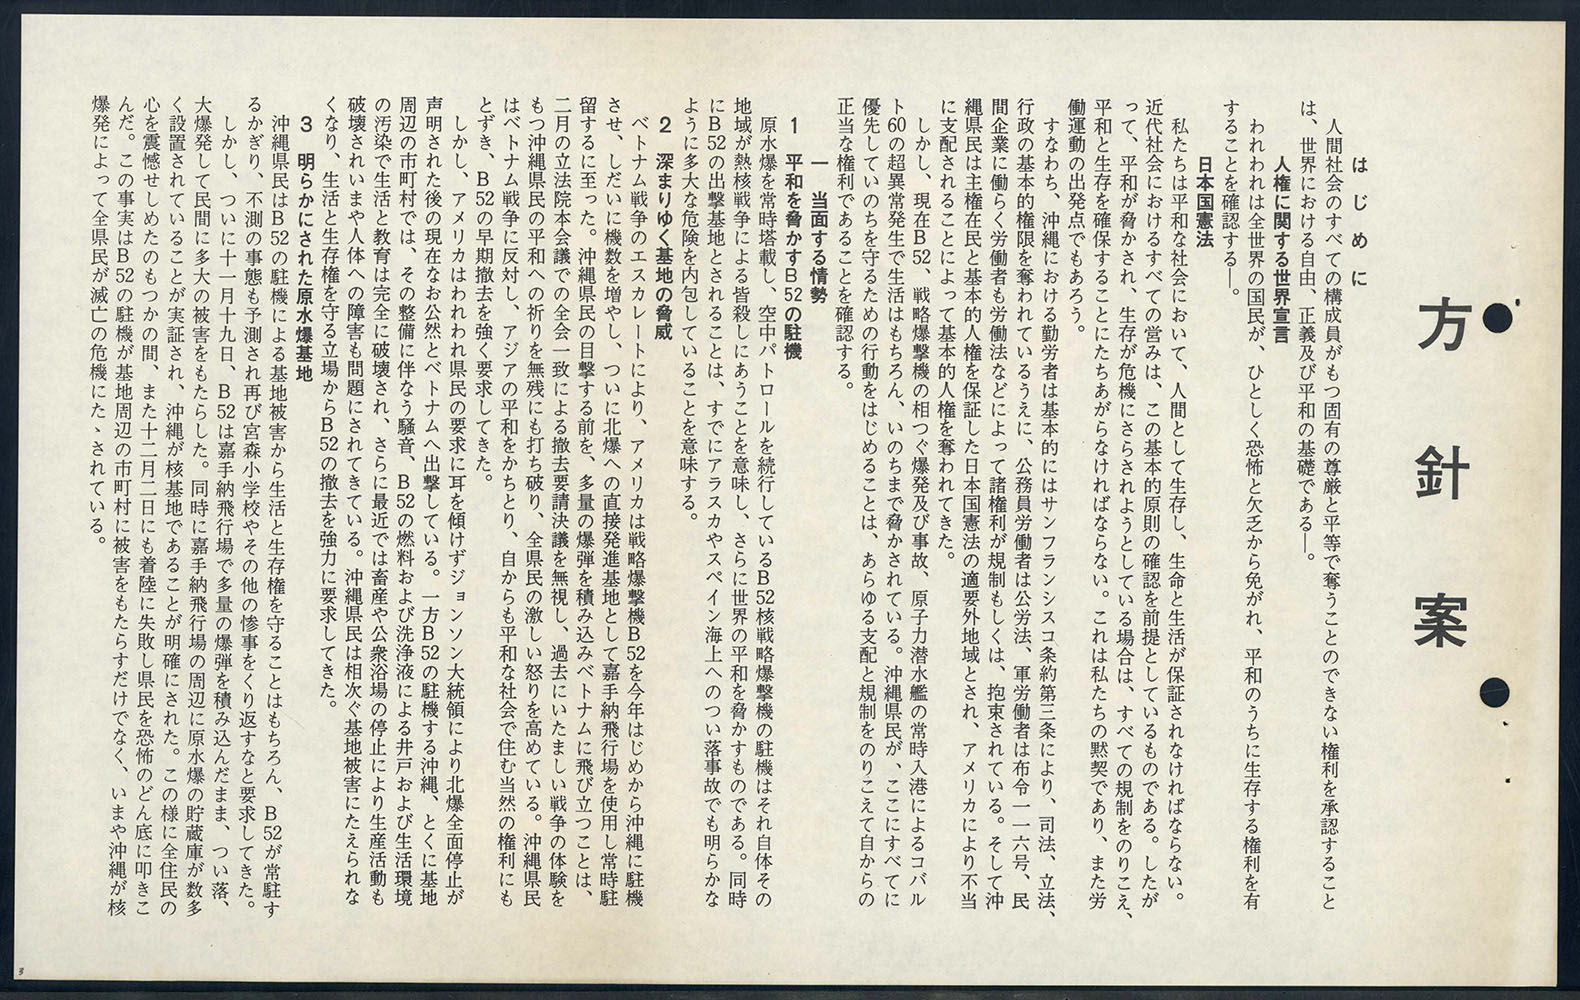 方針案
はじめに
人間社会のすべての構成員がもつ固有の尊厳と平等で奪うことのできない権利を承認すること
は、世界における自由、正義及び平和の基礎である―。
人権に関する世界宣言
われわれは全世界の国民が、ひとしく恐怖と欠乏から免がれ、平和のうちに生存する権利を有
することを確認する―。
日本国憲法
私たちは平和な社会において、人間として生存し、生命と生活が保証されなければならない。
近代社会におけるすべての営みは、この基本的原則の確認を前提としているものである。したが
って、平和が脅かされ、生存が危機にさらされようとしている場合は、すべての規制をのりこえ、
平和と生存を確保することにたちあがらなければならない。これは私たちの黙契であり、また労
働運動の出発点でもあろう。
すなわち、沖縄における勤労者は基本的にはサンフランシスコ条約第三条により、司法、立法、
行政の基本的権限を奪われているうえに、公務員労働者は公労法、軍労働者は布令一一六号、民
間企業に働らく労働者も労働法などによって諸権利が規制もしくは、拘束されている。そして沖
縄県民は主権在民と基本的人権を保証した日本国憲法の適要外地域とされ、アメリカにより不当
に支配されることによって基本的人権を奪われてきた。
しかし、現在B52、戦略爆撃機の相つぐ爆発及び事故、原子力潜水艦の常時入港によるコバル
ト60の超異常発生で生活はもちろん、いのちまで脅かされている。沖縄県民が、ここにすべてに
優先していのちを守るための行動をはじめることは、あらゆる支配と規制をのりこえて自からの
正当な権利であることを確認する。
一　当面する情勢
1　平和を脅かすB52の駐機
原水爆を常時塔載し、空中パトロールを続行しているB52核戦略爆撃機の駐機はそれ自体その
地域が熱核戦争による皆殺しにあうことを意味し、さらに世界の平和を脅かすものである。同時
にB52の出撃基地とされることは、すでにアラスカやスペイン海上へのつい落事故でも明らかな
ように多大な危険を内包していることを意味する。
2　深まりゆく基地の脅威
ベトナム戦争のエスカレートにより、アメリカは戦略爆撃機B52を今年はじめから沖縄に駐機
させ、しだいに機数を増やし、ついに北爆への直接発進基地として嘉手納飛行場を使用し常時駐
留するに至った。沖縄県民の目撃する前を、多量の爆弾を積み込みベトナムに飛び立つことは、
二月の立法院本会議での全会一致による撤去要請決議を無視し、過去にいたましい戦争の体験を
もつ沖縄県民の平和への祈りを無残にも打ち破り、全県民の激しい怒りを高めている。沖縄県民
はベトナム戦争に反対し、アジアの平和をかちとり、自からも平和な社会で住む当然の権利にも
とずき、B52の早期撤去を強く要求してきた。
しかし、アメリカはわれわれ県民の要求に耳を傾けずジョンソン大統領により北爆全面停止が
声明された後の現在なお公然とベトナムへ出撃している。一方B52の駐機する沖縄、とくに基地
周辺の市町村では、その整備に伴なう騒音、B52の燃料および洗浄液による井戸および生活環境
の汚染で生活と教育は完全に破壊され、さらに最近では畜産や公衆浴場の停止により生産活動も
破壊されいまや人体への障害も問題にされてきている。沖縄県民は相次ぐ基地被害にたえられな
くなり、生活と生存権を守る立場からB52の撤去を強力に要求してきた。
3　明らかにされた原水爆基地
沖縄県民はB52の駐機による基地被害から生活と生存権を守ることはもちろん、B52が常駐す
るかぎり、不測の事態も予測され再び宮森小学校やその他の惨事をくり返すなと要求してきた。
しかし、ついに十一月十九日、B52は嘉手納飛行場で多量の爆弾を積み込んだまま、つい落、
大爆発して民間に多大の被害をもたらした。同時に嘉手納飛行場の周辺に原水爆の貯蔵庫が数多
く設置されていることが実証され、沖縄が核基地であることが明確にされた。この様に全住民の
心を震憾せしめたのもつかの間、また十二月二日にも着陸に失敗し県民を恐怖のどん底に叩きこ
んだ。この事実はB52の駐機が基地周辺の市町村に被害をもたらすだけでなく、いまや沖縄が核
爆発によって全県民が滅亡の危機にたゝされている。
3